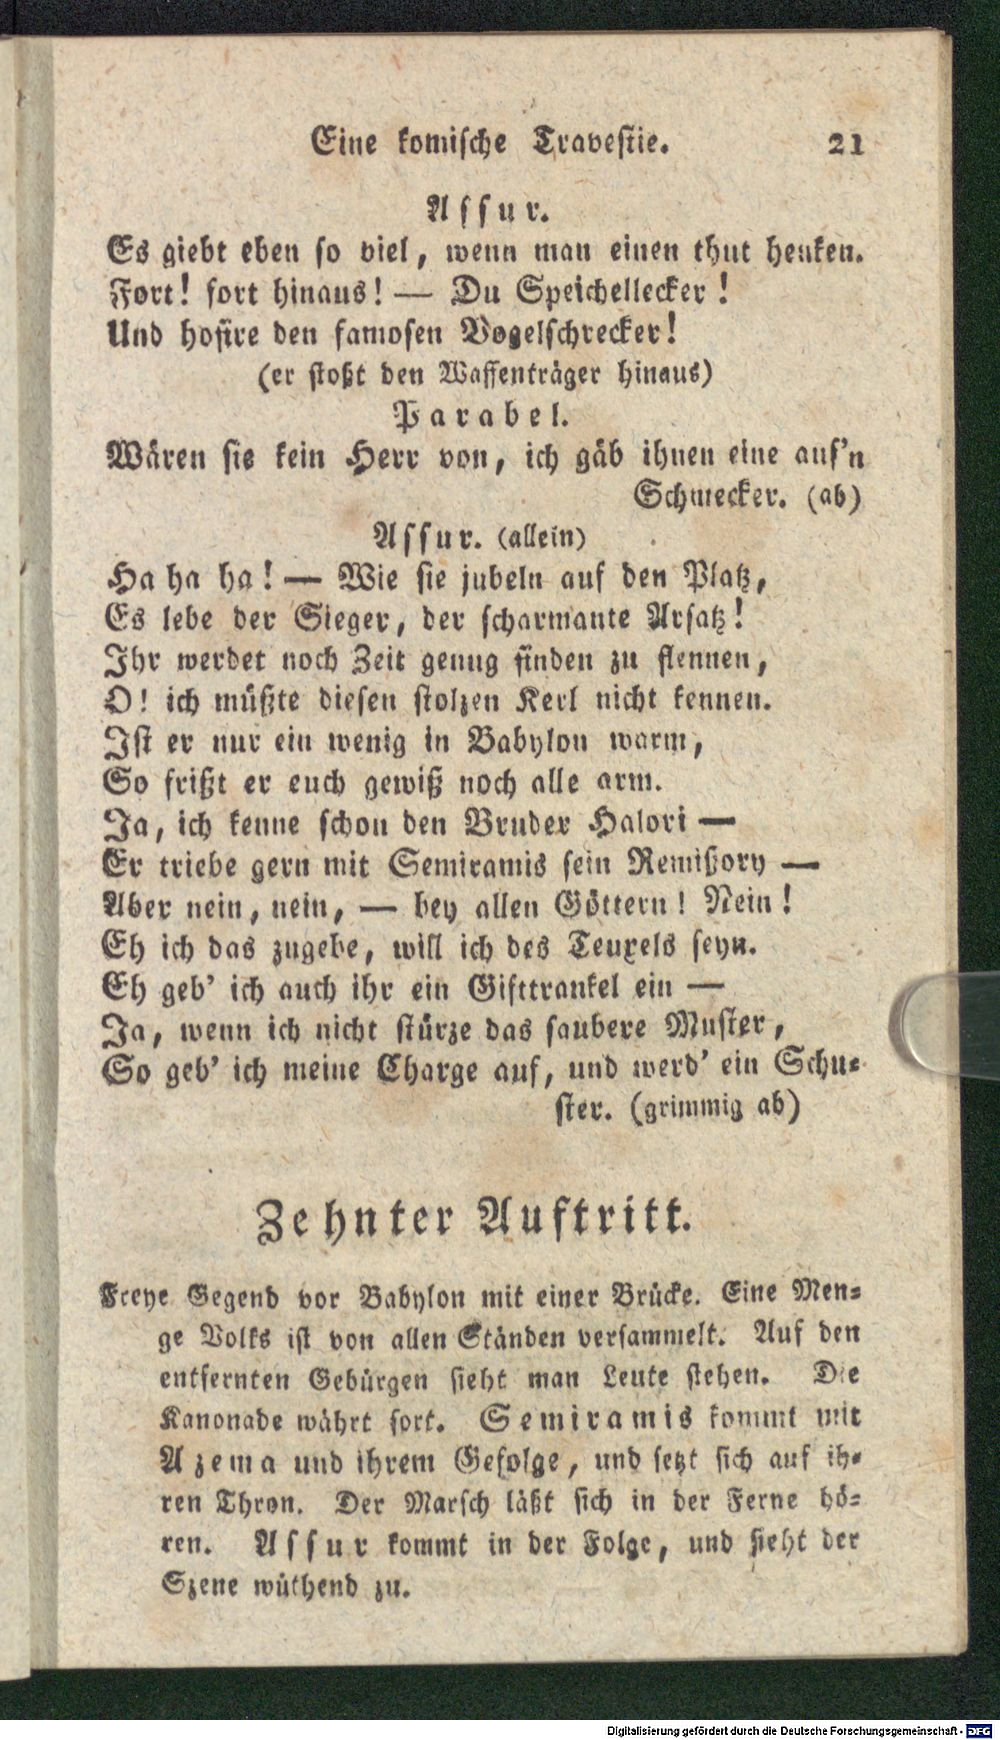 Eine komische Travestie. 21
Assur.
Es giebt eben so viel, wenn man einen thut henken.
Fort! fort hinaus! — Du Speichellecker!
Und hofire den famosen Vogelschrecker!
(er stoßt den Waffenträger hinaus)
Parabel.
Wären sie kein Herr von, ich gäb ihnen eine auf'n
Schmecker. (ab)
Assur. (allein)
Ha ha ha! — Wie sie jubeln auf den Platz,
Es lebe der Sieger, der scharmante Arsatz!
Ihr werdet noch Zeit genug finden zu flennen,
O! ich müßte diesen stolzen Kerl nicht kennen.
Ist er nur ein wenig in Babylon warm,
So frißt er euch gewiß noch alle arm.
Ja, ich kenne schon den Bruder Halori —
Er triebe gern mit Semiramis sein Remißory —
Aber nein, nein, — bey allen Göttern! Nein!
Eh ich das zugebe, will ich des Teuxels seyn.
Eh geb' ich auch ihr ein Gifttrankel ein —
Ja, wenn ich nicht stürze das saubere Muster,
So geb' ich meine Charge auf, und werd' ein Schu-
ster. (grimmig ab)
Zehnter Auftritt.
Freye Gegend vor Babylon mit einer Brücke. Eine Men-
ge Volks ist von allen Ständen versammelt. Auf den
entfernten Gebürgen sieht man Leute stehen. Die
Kanonade währt fort. Semiramis kommt mit
Azema und ihrem Gefolge, und setzt sich auf ih-
ren Thron. Der Marsch läßt sich in der Ferne hö-
ren. Assur kommt in der Folge, und sieht der
Szene wüthend zu.
Digitalisierung gefördert durch die Deutsche Forschungsgemeinschaft - DFG